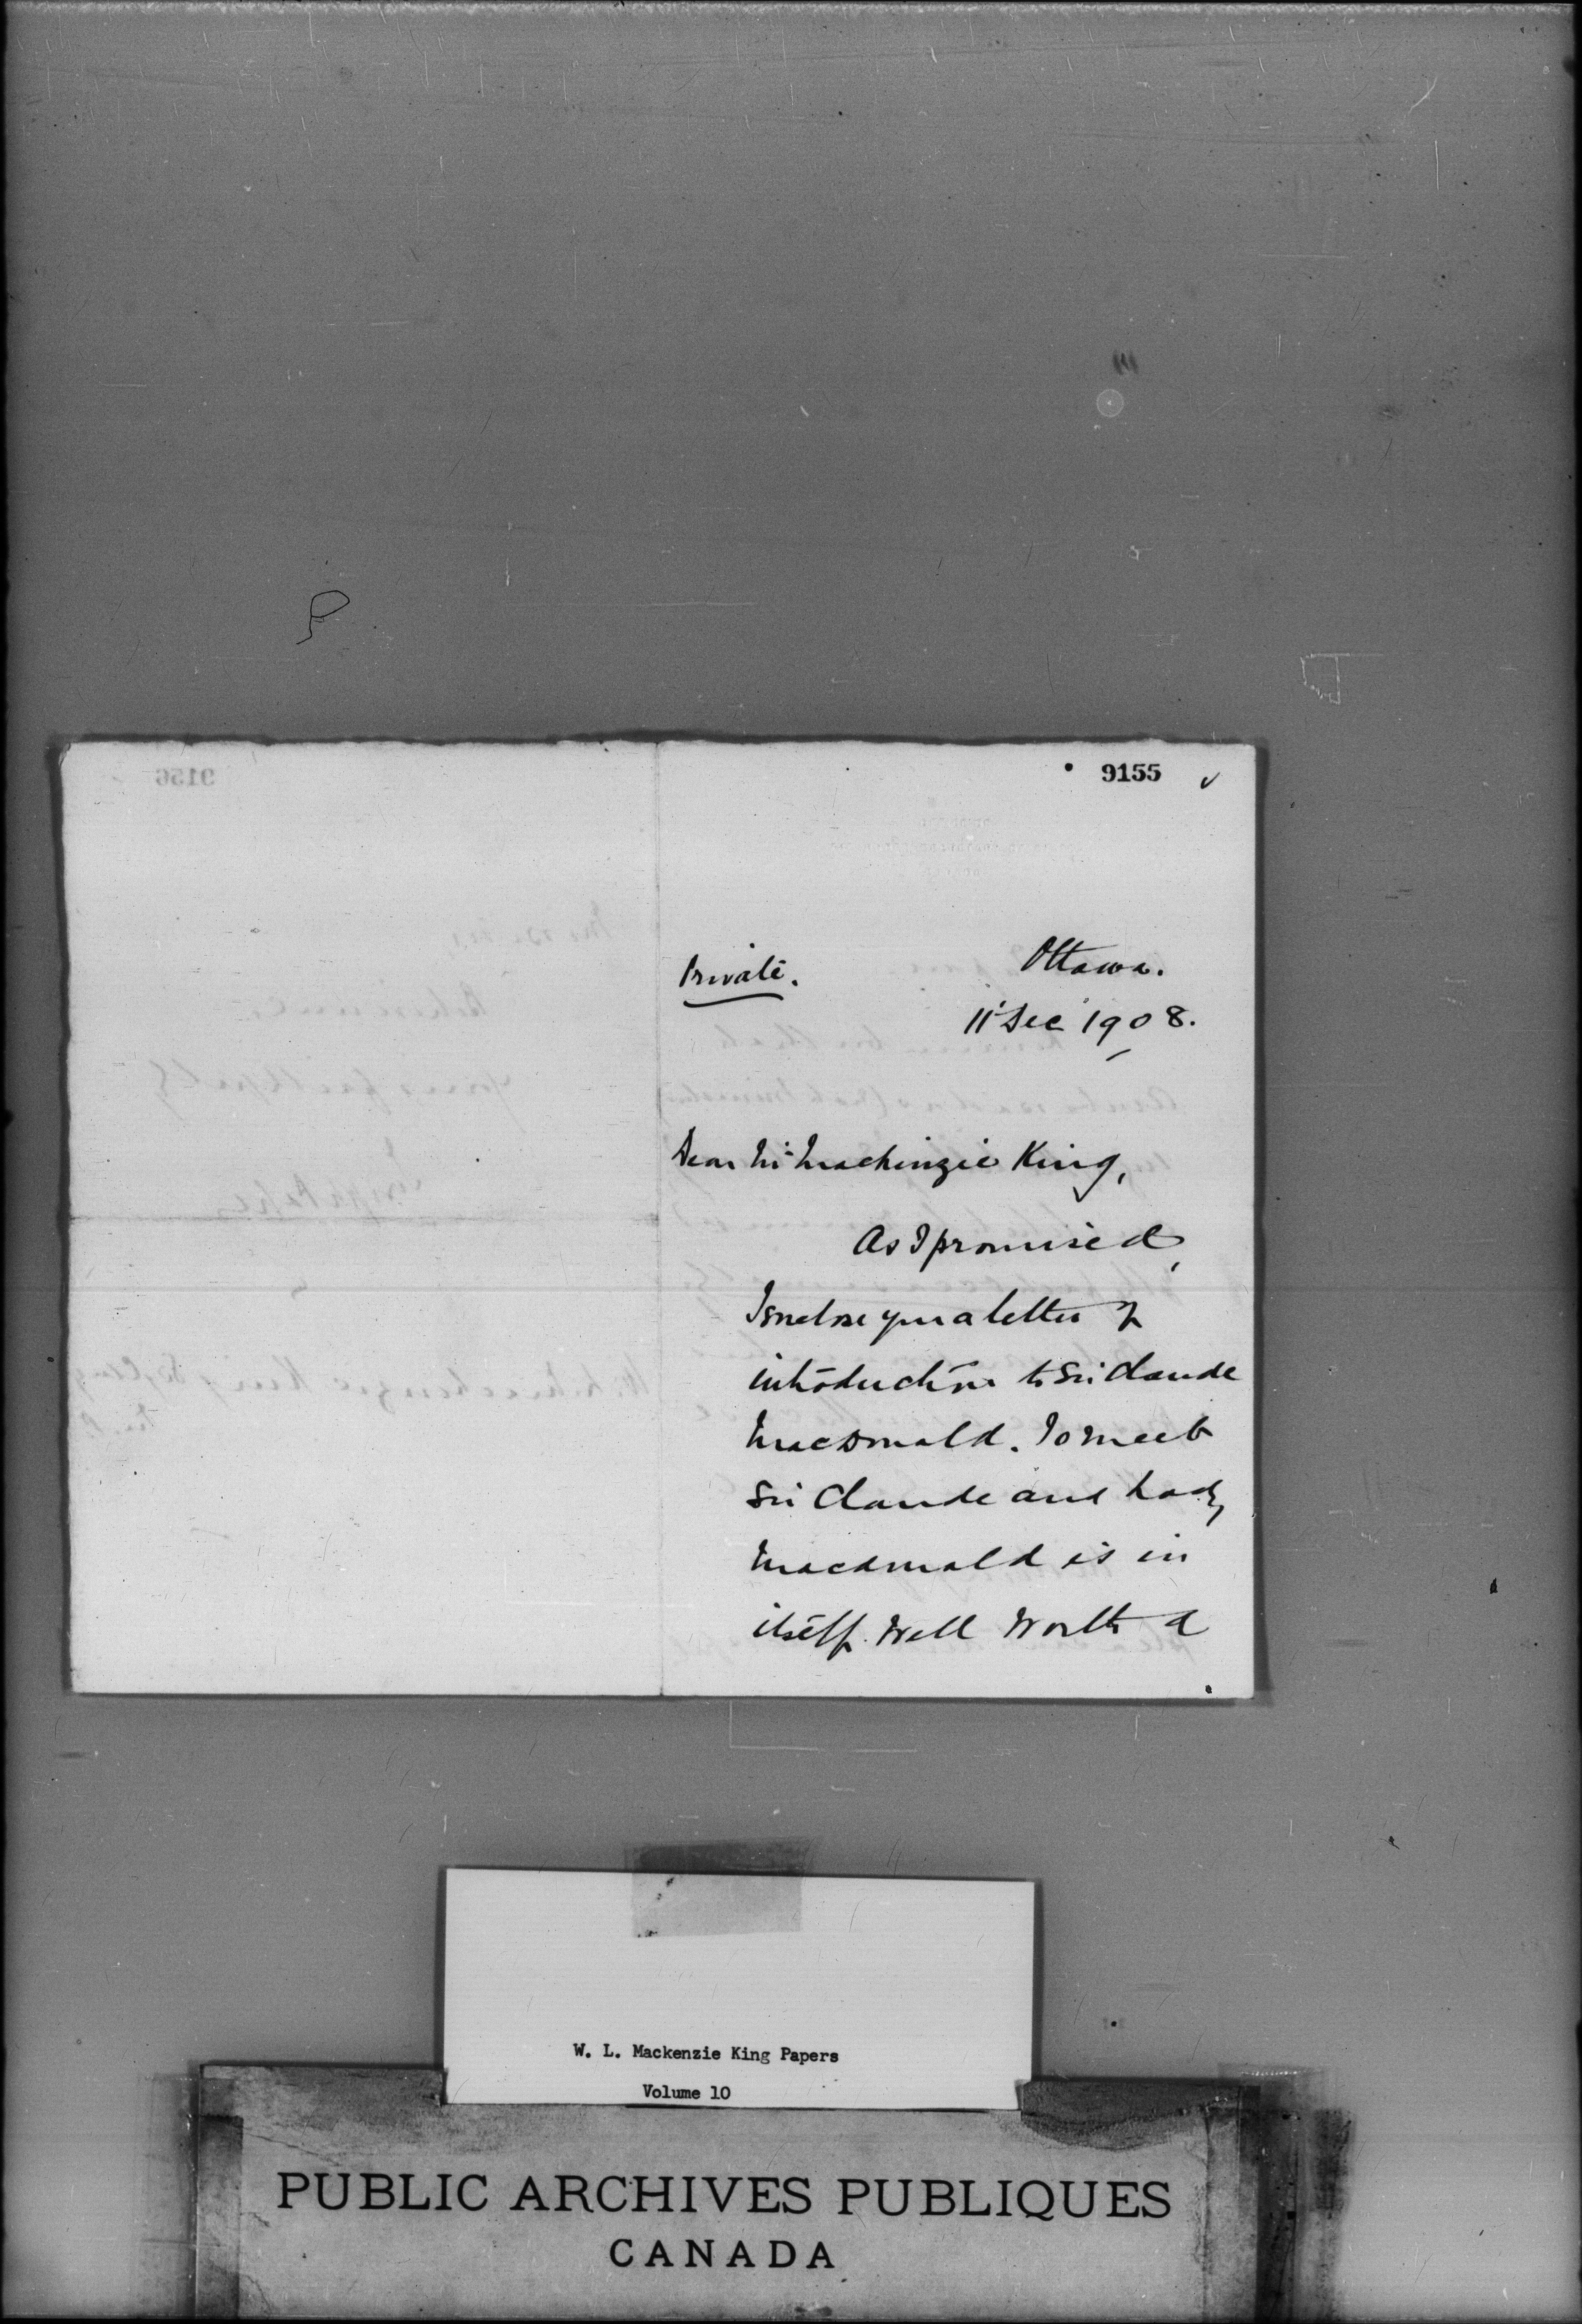 9156
9155
Private.
Ottawa.
11 Dec 1908.
Dear Mr Mackenzie King,
As I promised,
I enclose you a letter of
introduction to Sir Claude
MacDonald. To meet
Sir Claude and Lady
Macdonald is in
itself well worth a
W. L. Mackenzie King Papers
Volume 10
PUBLIC ARCHIVES PUBLIQUES
CANADA